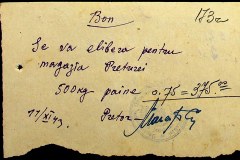 Bon
173a
Se va elibera pentru
magazia Preturei
500 kg paine 0,75 = 375.00
11/XI 43.
Pretor